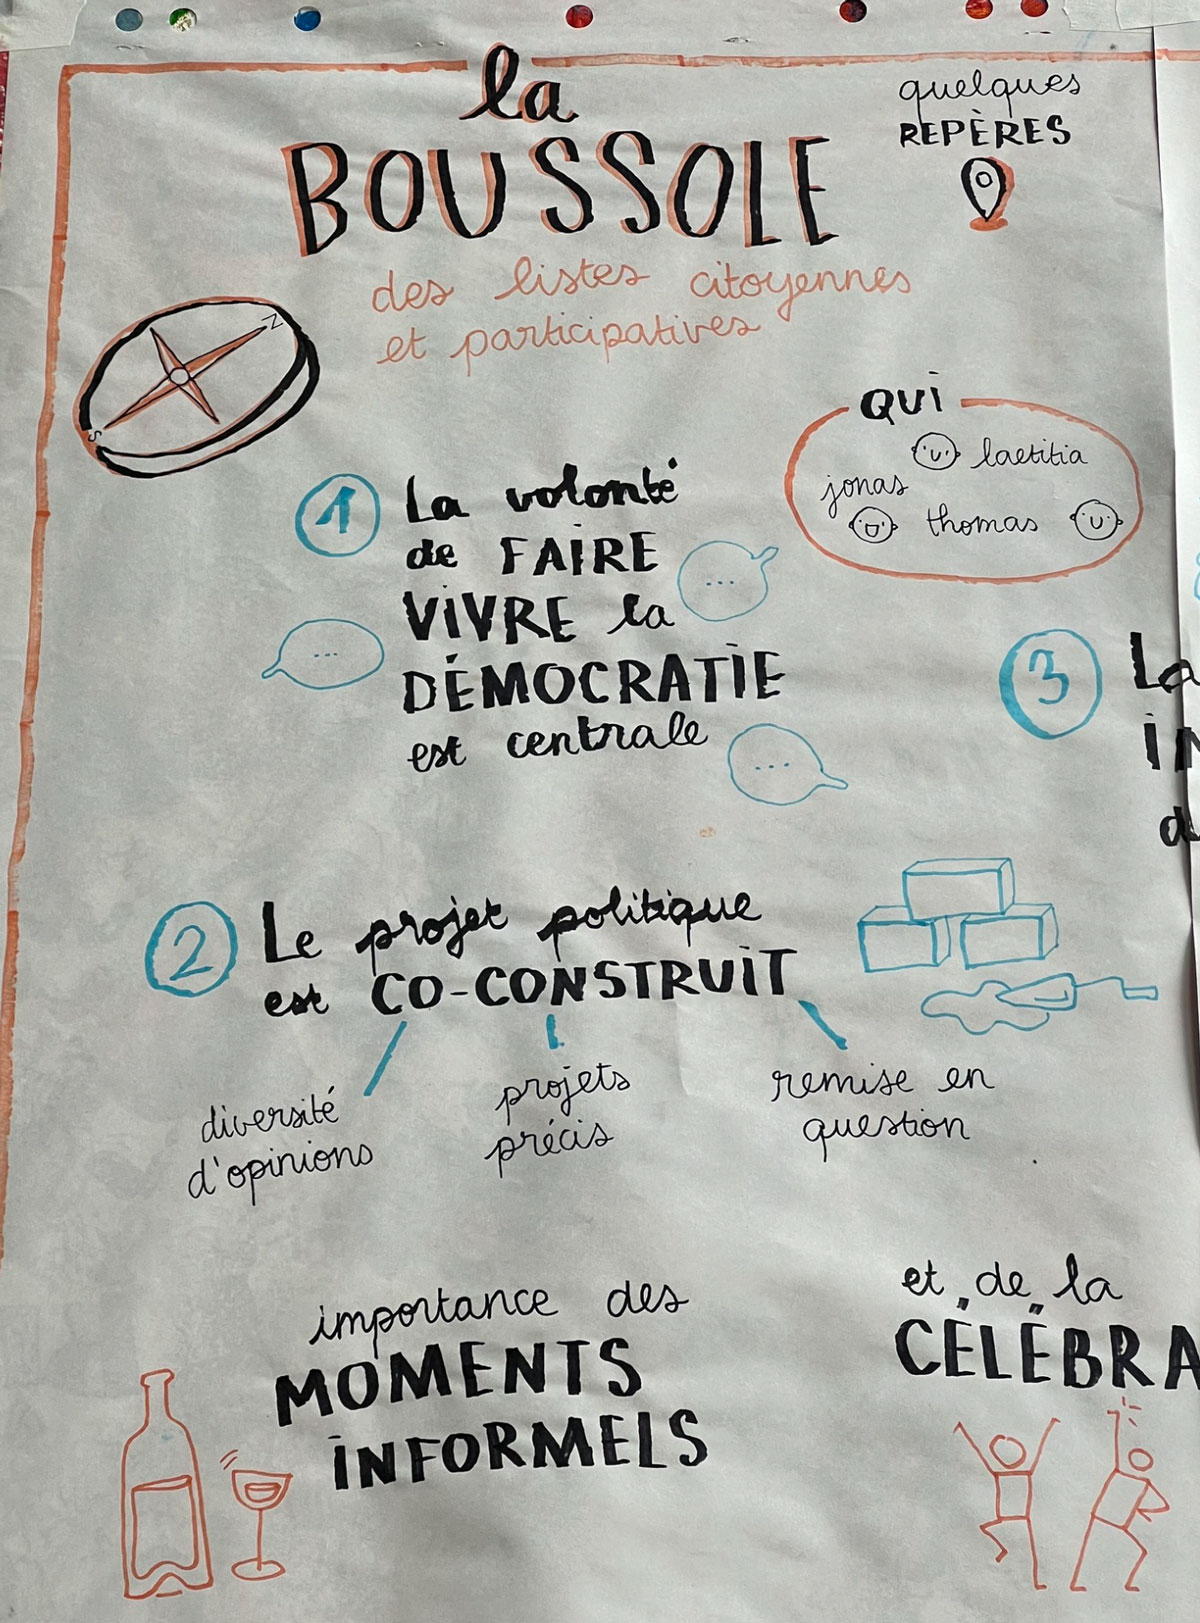 la
BOUSSOLE
des listes citoyennes
et participatives
quelques
REPÈRES
N
S
QUI
laetitia
jonas
thomas
1 La volonté
de FAIRE
VIVRE la
DÉMOCRATIE
est centrale
...
...
...
3 La
2 Le projet politique
est CO-CONSTRUIT
diversité
d'opinions
projets
précis
remise en
question
importance des
MOMENTS
INFORMELS
et de la
CÉLÉBRA